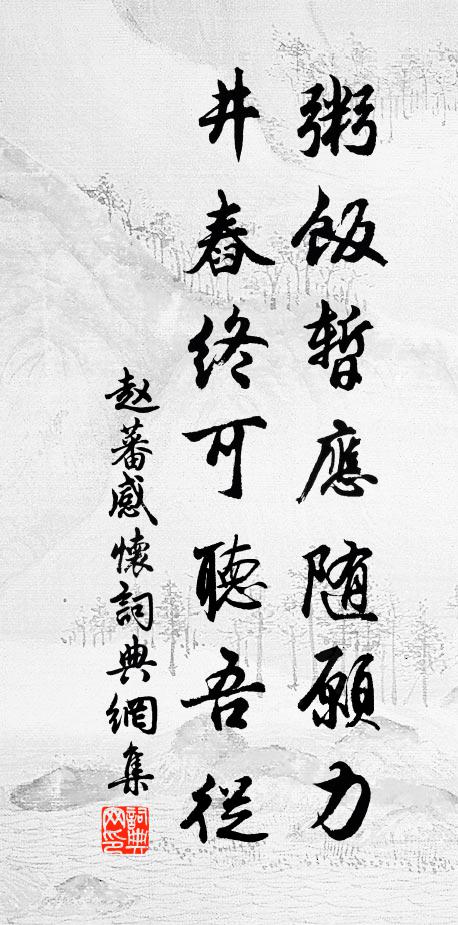 粥飯暫應随願力
井舂終可聽吾從
赵蕃感懷詞典網集
詞典
网印